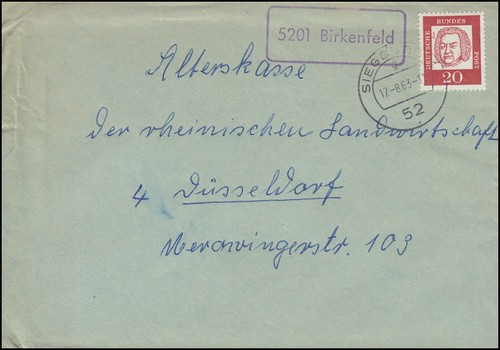 5201 Birkenfeld
DEUTSCHE BUNDES POST
20
SIEG
12.-8.63.-1
52
Alterskasse
der rheinischen Landwirtschaft
4 Düsseldorf
Merowingerstr. 103